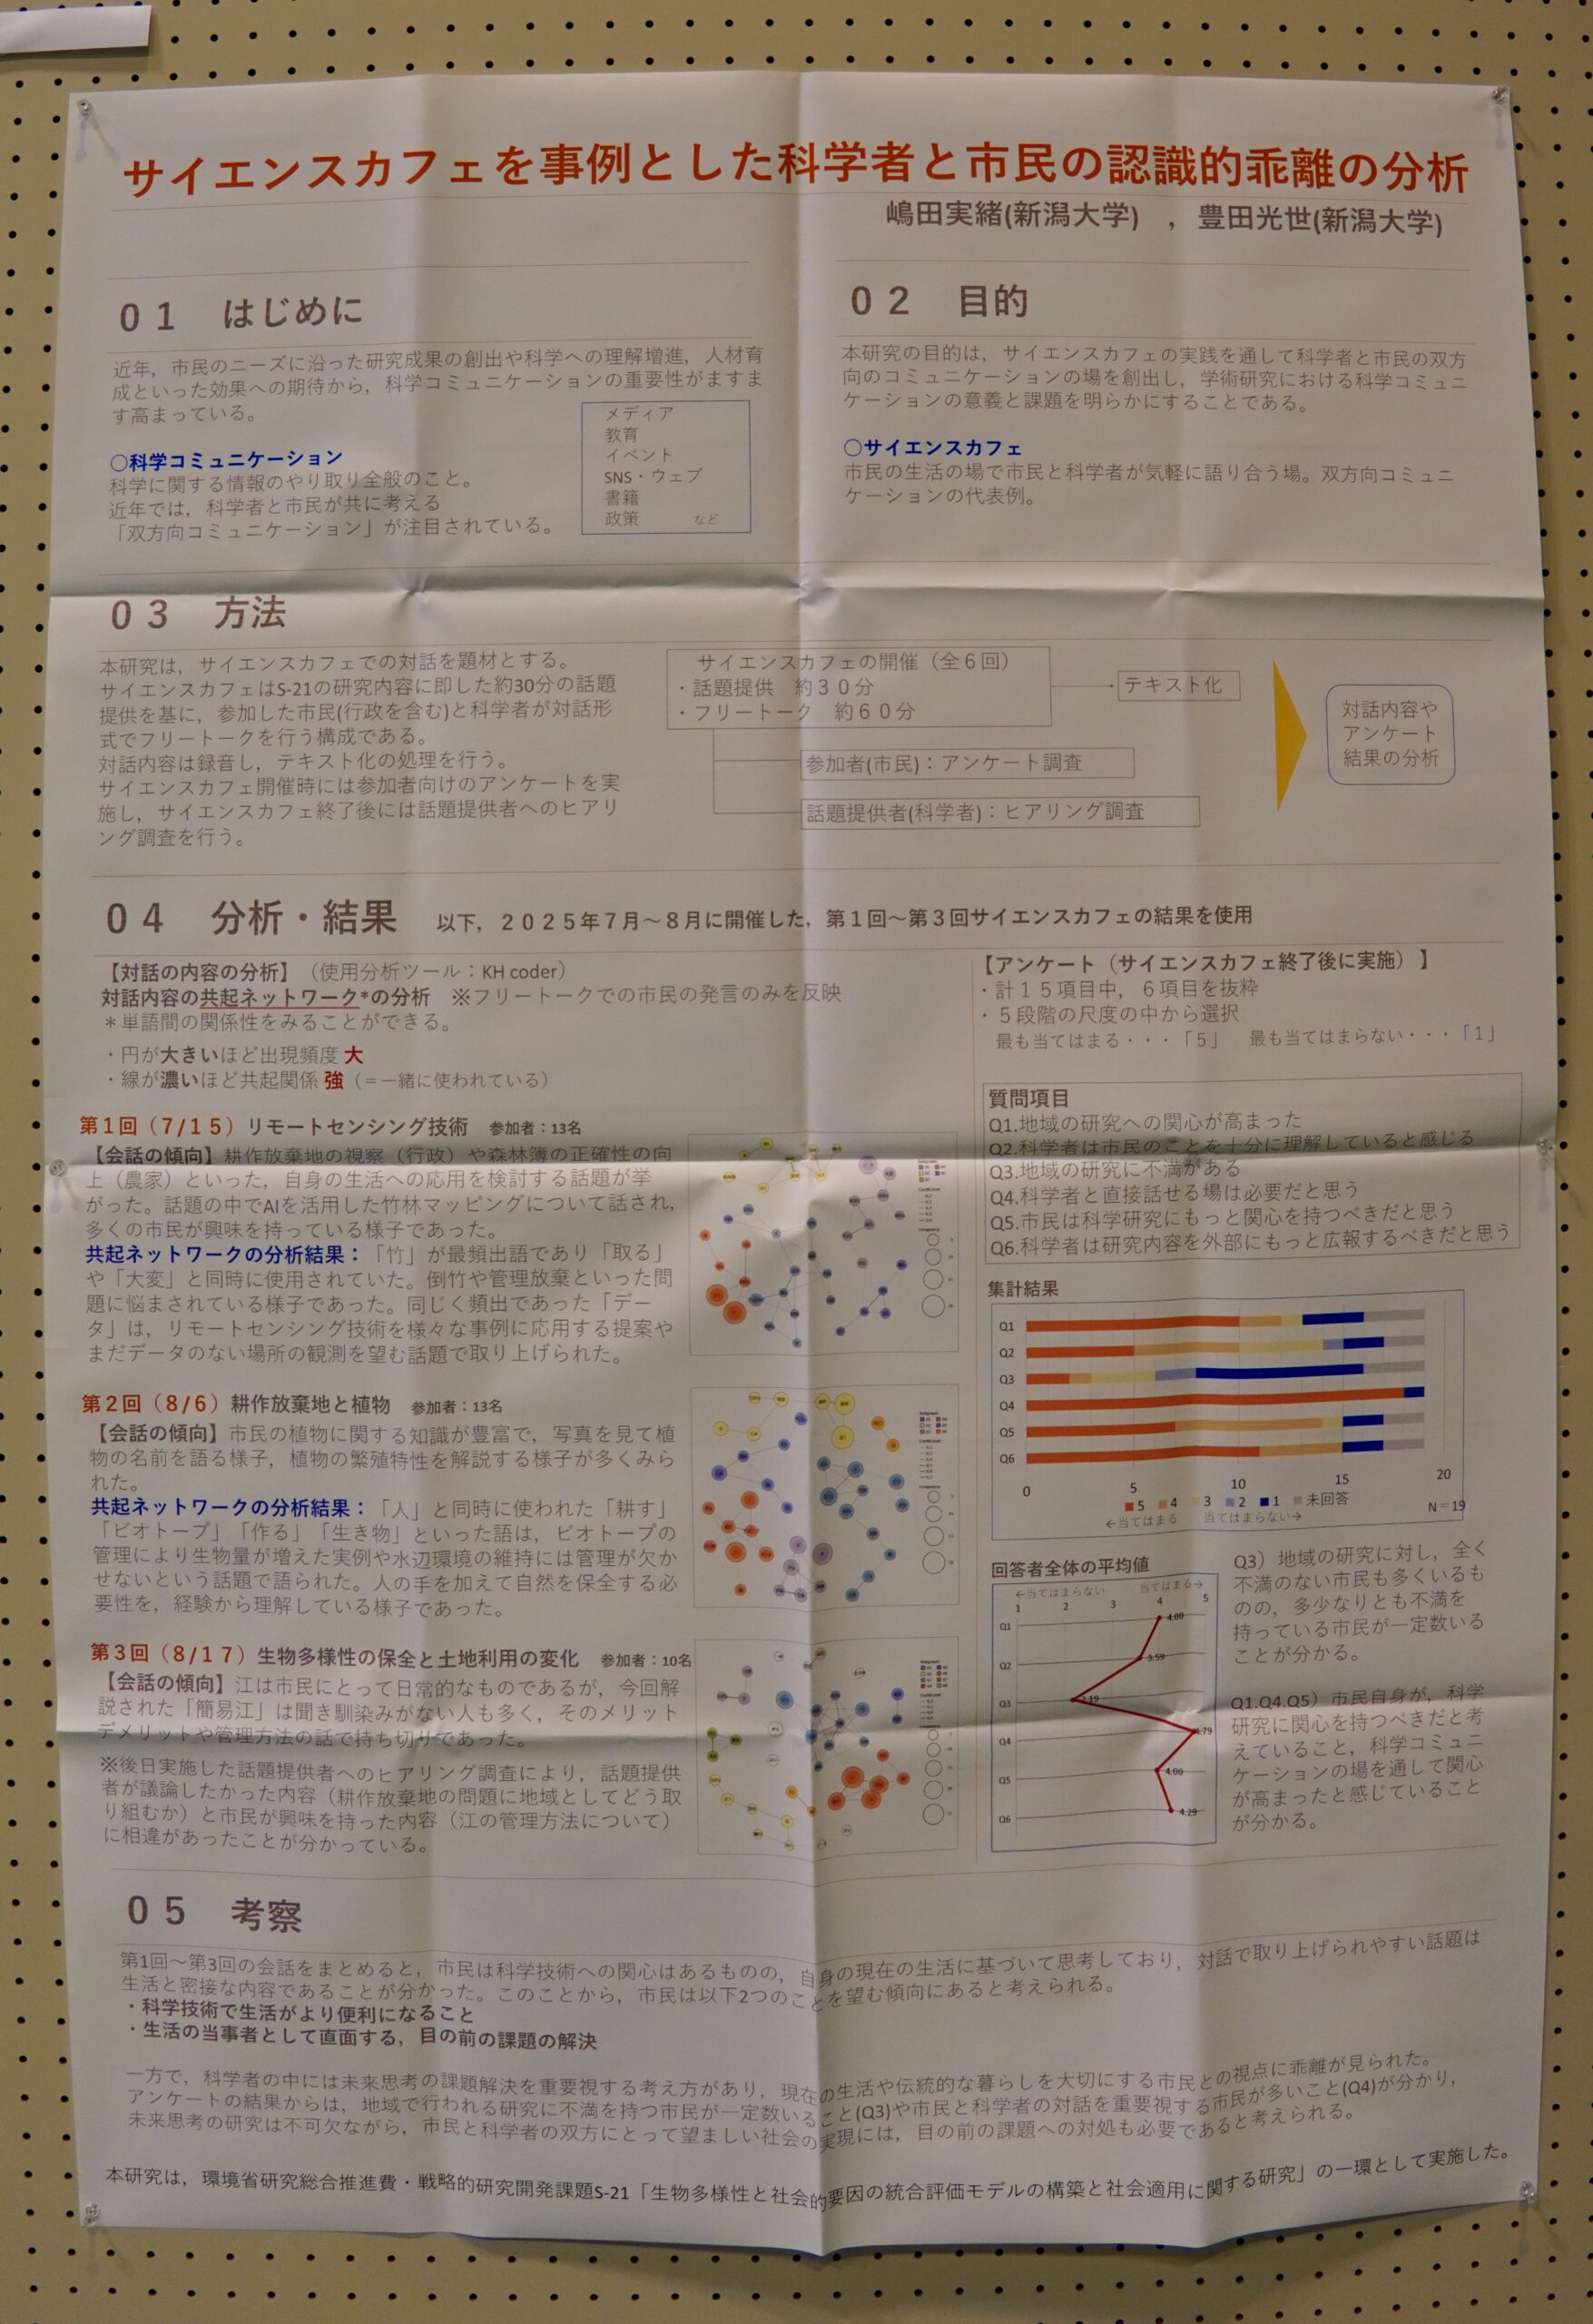 サイエンスカフェを事例とした科学者と市民の認識的乖離の分析
嶋田実緒(新潟大学) ，豊田光世(新潟大学)
０１ はじめに
近年，市民のニーズに沿った研究成果の創出や科学への理解増進，人材育
成といった効果への期待から，科学コミュニケーションの重要性がますま
す高まっている。
○科学コミュニケーション
科学に関する情報のやり取り全般のこと。
近年では，科学者と市民が共に考える
「双方向コミュニケーション」が注目されている。
メディア
教育
イベント
SNS・ウェブ
書籍
政策 など
０２ 目的
本研究の目的は，サイエンスカフェの実践を通して科学者と市民の双方
向のコミュニケーションの場を創出し，学術研究における科学コミュニ
ケーションの意義と課題を明らかにすることである。
○サイエンスカフェ
市民の生活の場で市民と科学者が気軽に語り合う場。双方向コミュニ
ケーションの代表例。
０３ 方法
本研究は，サイエンスカフェでの対話を題材とする。
サイエンスカフェはS-21の研究内容に即した約30分の話題
提供を基に，参加した市民(行政を含む)と科学者が対話形
式でフリートークを行う構成である。
対話内容は録音し，テキスト化の処理を行う。
サイエンスカフェ開催時には参加者向けのアンケートを実
施し，サイエンスカフェ終了後には話題提供者へのヒアリ
ング調査を行う。
サイエンスカフェの開催（全６回）
・話題提供 約３０分
・フリートーク 約６０分
テキスト化
参加者(市民)：アンケート調査
話題提供者(科学者)：ヒアリング調査
対話内容や
アンケート
結果の分析
０４ 分析・結果 以下，２０２５年７月～８月に開催した，第１回～第３回サイエンスカフェの結果を使用
【対話の内容の分析】（使用分析ツール：KH coder）
対話内容の共起ネットワーク*の分析 ※フリートークでの市民の発言のみを反映
＊単語間の関係性をみることができる。
・円が大きいほど出現頻度 大
・線が濃いほど共起関係 強（＝一緒に使われている）
第１回（7/1５）リモートセンシング技術 参加者：13名
【会話の傾向】耕作放棄地の視察（行政）や森林簿の正確性の向
上（農家）といった，自身の生活への応用を検討する話題が挙
がった。話題の中でAIを活用した竹林マッピングについて話され，
多くの市民が興味を持っている様子であった。
共起ネットワークの分析結果：「竹」が最頻出語であり「取る」
や「大変」と同時に使用されていた。倒竹や管理放棄といった問
題に悩まされている様子であった。同じく頻出であった「デー
タ」は，リモートセンシング技術を様々な事例に応用する提案や
まだデータのない場所の観測を望む話題で取り上げられた。
第２回（8/6）耕作放棄地と植物 参加者：13名
【会話の傾向】市民の植物に関する知識が豊富で，写真を見て植
物の名前を語る様子，植物の繁殖特性を解説する様子が多くみら
れた。
共起ネットワークの分析結果：「人」と同時に使われた「耕す」
「ビオトープ」「作る」「生き物」といった語は，ビオトープの
管理により生物量が増えた実例や水辺環境の維持には管理が欠か
せないという話題で語られた。人の手を加えて自然を保全する必
要性を，経験から理解している様子であった。
第３回（8/1７）生物多様性の保全と土地利用の変化 参加者：10名
【会話の傾向】江は市民にとって日常的なものであるが，今回解
説された「簡易江」は聞き馴染みがない人も多く，そのメリット
デメリットや管理方法の話で持ち切りであった。
※後日実施した話題提供者へのヒアリング調査により，話題提供
者が議論したかった内容（耕作放棄地の問題に地域としてどう取
り組むか）と市民が興味を持った内容（江の管理方法について）
に相違があったことが分かっている。
【アンケート（サイエンスカフェ終了後に実施）】
・計１５項目中，６項目を抜粋
・５段階の尺度の中から選択
最も当てはまる・・・「５」 最も当てはまらない・・・「１」
質問項目
Q1.地域の研究への関心が高まった
Q2.科学者は市民のことを十分に理解していると感じる
Q3.地域の研究に不満がある
Q4.科学者と直接話せる場は必要だと思う
Q5.市民は科学研究にもっと関心を持つべきだと思う
Q6.科学者は研究内容を外部にもっと広報するべきだと思う
集計結果
Q1
Q2
Q3
Q4
Q5
Q6
0 5 10 15 20
5 4 3 2 1 未回答
←当てはまる 当てはまらない→
N＝19
回答者全体の平均値
←当てはまらない 当てはまる→
1 2 3 4 5
Q1 4.00
Q2 3.59
Q3 2.19
Q4 4.79
Q5 4.00
Q6 4.29
Q3）地域の研究に対し，全く
不満のない市民も多くいるも
のの，多少なりとも不満を
持っている市民が一定数いる
ことが分かる。
Q1.Q4.Q5）市民自身が，科学
研究に関心を持つべきだと考
えていること，科学コミュニ
ケーションの場を通して関心
が高まったと感じていること
が分かる。
０５ 考察
第1回～第3回の会話をまとめると，市民は科学技術への関心はあるものの，自身の現在の生活に基づいて思考しており，対話で取り上げられやすい話題は
生活と密接な内容であることが分かった。このことから，市民は以下2つのことを望む傾向にあると考えられる。
・科学技術で生活がより便利になること
・生活の当事者として直面する，目の前の課題の解決
一方で，科学者の中には未来思考の課題解決を重要視する考え方があり，現在の生活や伝統的な暮らしを大切にする市民との視点に乖離が見られた。
アンケートの結果からは，地域で行われる研究に不満を持つ市民が一定数いること(Q3)や市民と科学者の対話を重要視する市民が多いこと(Q4)が分かり，
未来思考の研究は不可欠ながら，市民と科学者の双方にとって望ましい社会の実現には，目の前の課題への対処も必要であると考えられる。
本研究は，環境省研究総合推進費・戦略的研究開発課題S-21「生物多様性と社会的要因の統合評価モデルの構築と社会適用に関する研究」の一環として実施した。